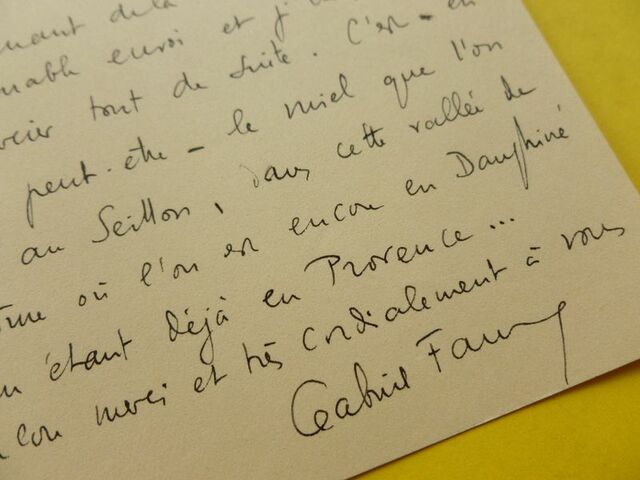 nant de la
mable envoi et j'
rcier tout de suite. C'est - en
peut-être - le miel que l'on
au Seillon, dans cette vallée de
ôme où l'on est encore en Dauphiné
n étant déjà en Provence...
merci et très cordialement à vous
Gabriel Faure